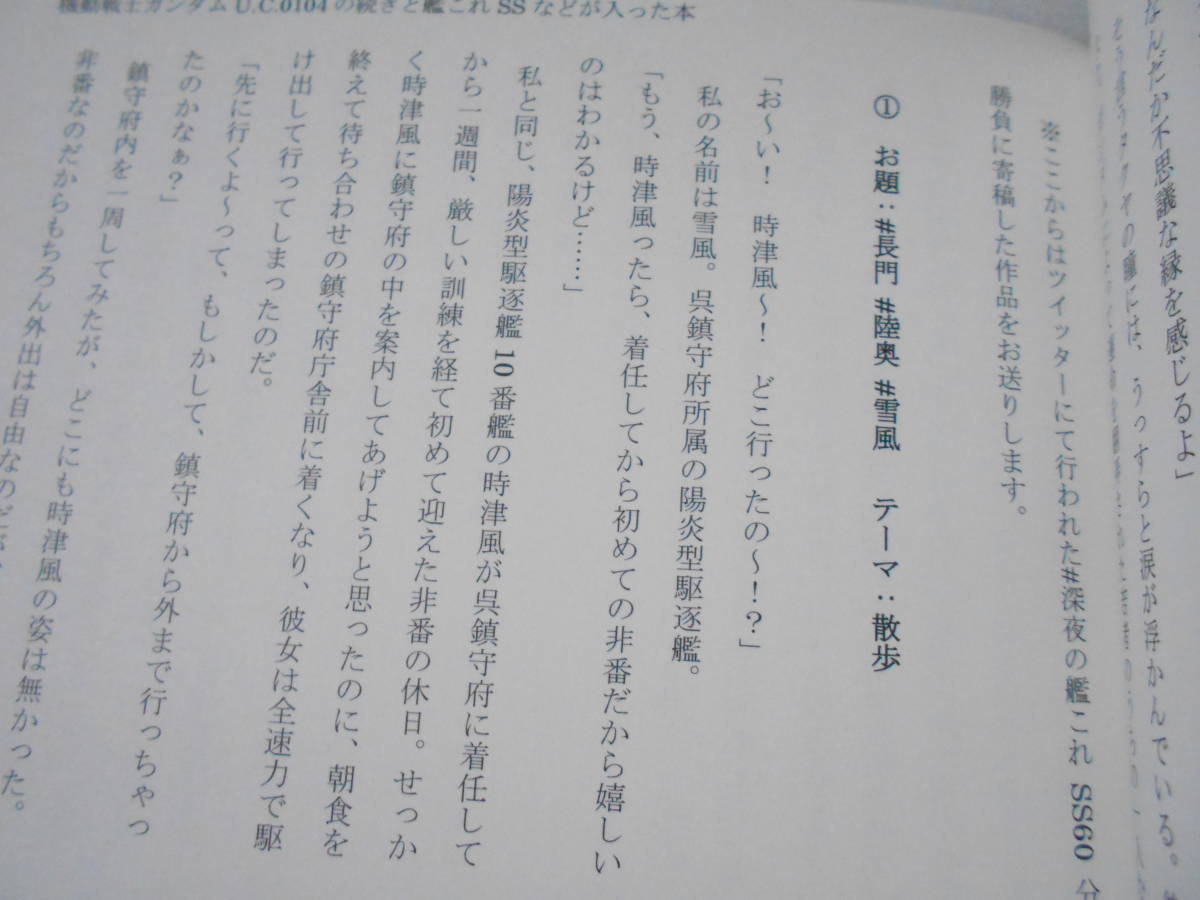 機動戦士ガンダム U.C.0104 の続きと艦これ SS などが入った本
なんだか不思議な縁を感じるよ」
の瞳には、うっすらと涙が浮かんでいる。
※ここからはツイッターにて行われた#深夜の艦これ SS60 分
勝負に寄稿した作品をお送りします。
① お題：#長門 #陸奥 #雪風 テーマ：散歩
「お～い！ 時津風～！ どこ行ったの～！？」
私の名前は雪風。呉鎮守府所属の陽炎型駆逐艦。
「もう、時津風ったら、着任してから初めての非番だから嬉しい
のはわかるけど……」
私と同じ、陽炎型駆逐艦 10 番艦の時津風が呉鎮守府に着任して
から一週間、厳しい訓練を経て初めて迎えた非番の休日。せっか
く時津風に鎮守府の中を案内してあげようと思ったのに、朝食を
終えて待ち合わせの鎮守府庁舎前に着くなり、彼女は全速力で駆
け出して行ってしまったのだ。
「先に行くよ～って、もしかして、鎮守府から外まで行っちゃっ
たのかなぁ？」
鎮守府内を一周してみたが、どこにも時津風の姿は無かった。
非番なのだからもちろん外出は自由なのだが、